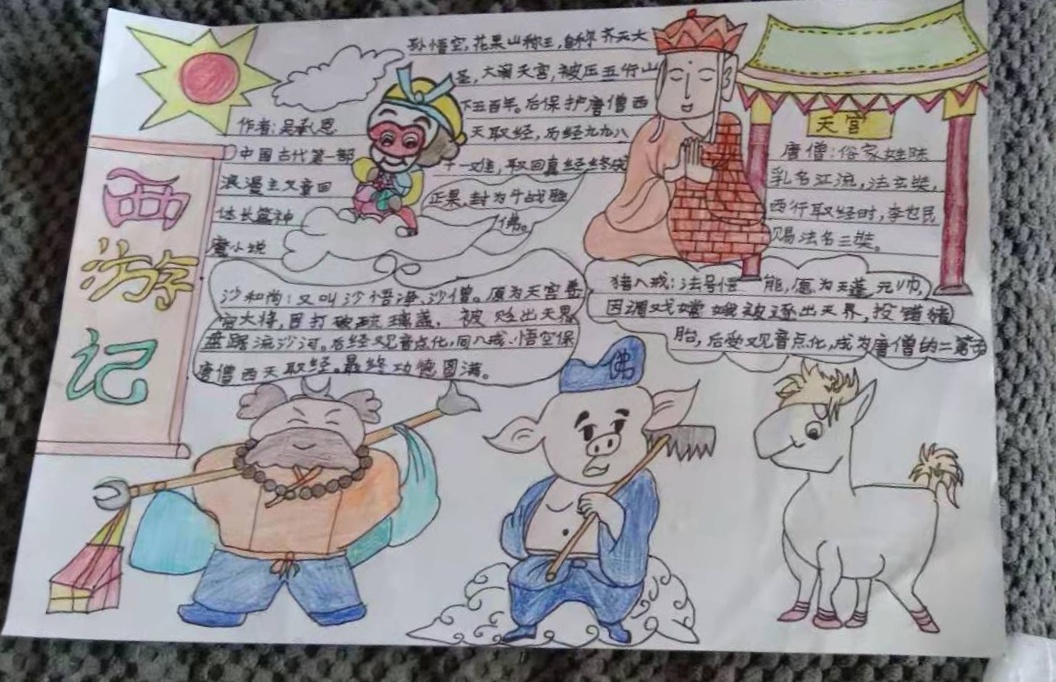 西
游
记
作者：吴承恩
中国古代第一部
浪漫主义章回
体长篇神
魔小说
孙悟空，花果山称王，自称齐天大
圣，大闹天宫，被压五行山
下五百年。后保护唐僧西
天取经，历经九九八
十一难，取回真经终成
正果，封为斗战胜
佛。
天宫
唐僧：俗家姓陈
乳名江流，法玄奘，
西行取经时，李世民
赐法名三藏。
沙和尚：又叫沙悟净，沙僧。原为天宫卷
帘大将，因打破琉璃盏，被贬出天界
盘踞流沙河。后经观音点化，同八戒、悟空保
唐僧西天取经。最终功德圆满。
猪八戒：法号悟能，原为天蓬元帅，
因调戏嫦娥被逐出天界，投错猪
胎，后受观音点化，成为唐僧的二
佛